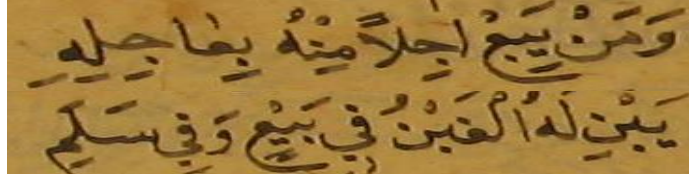 وَمَنْ يَبِعْ اٰجِلاً مِنْهُ بِعَاجِلِهِ
يَبِنْ لَهُ الْغَبْنُ فِي بَيْعٍ وَفِي سَلَمِ